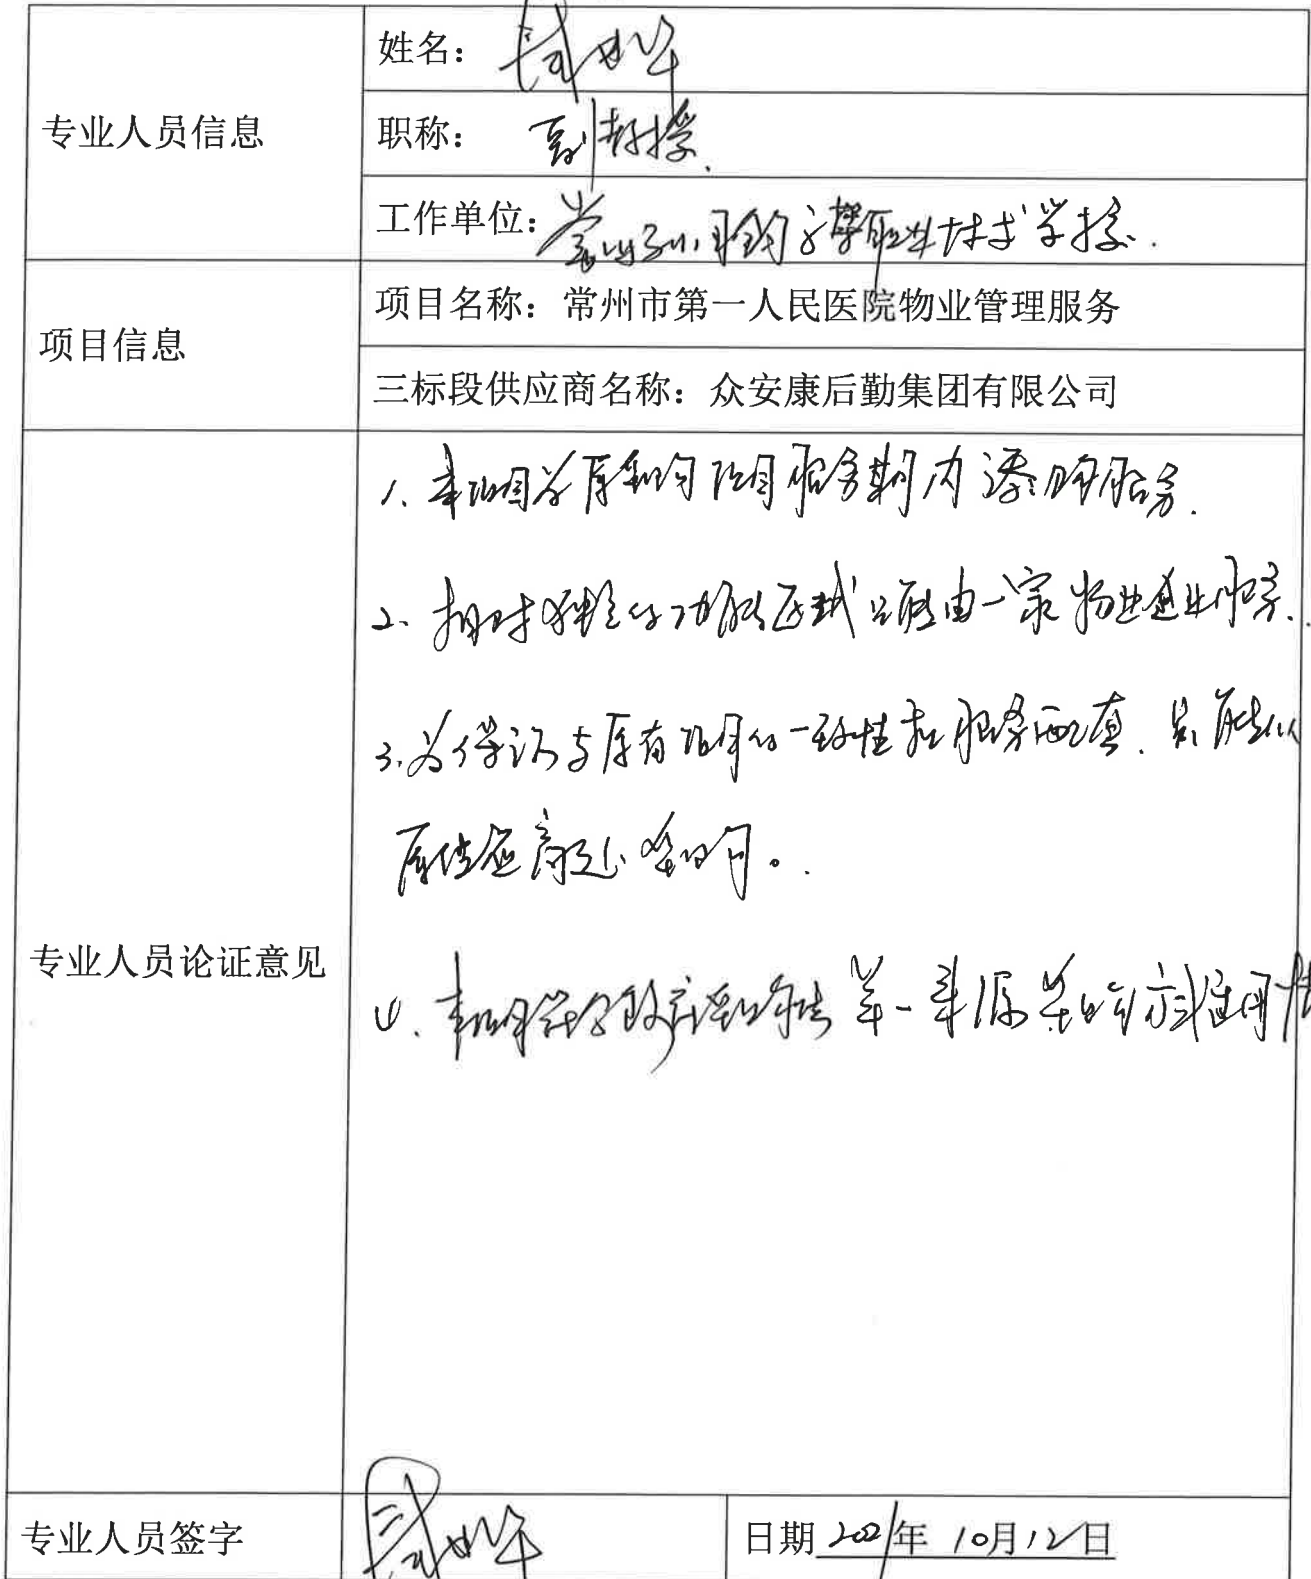 专业人员信息
姓名：
职称： 副教授
工作单位： 职业技术学校.
项目信息
项目名称：常州市第一人民医院物业管理服务
三标段供应商名称：众安康后勤集团有限公司
专业人员论证意见
1. 本项目为原采购项目服务期内添购服务.
2. 相对独立的功能区域只能由一家物业企业服务.
3. 为保证与原有项目的一致性和服务配套. 只能从
原供应商处采购。
4. 本项目符合政府采购法单一来源采购方式适用
专业人员签字
日期 2021年 10月12日